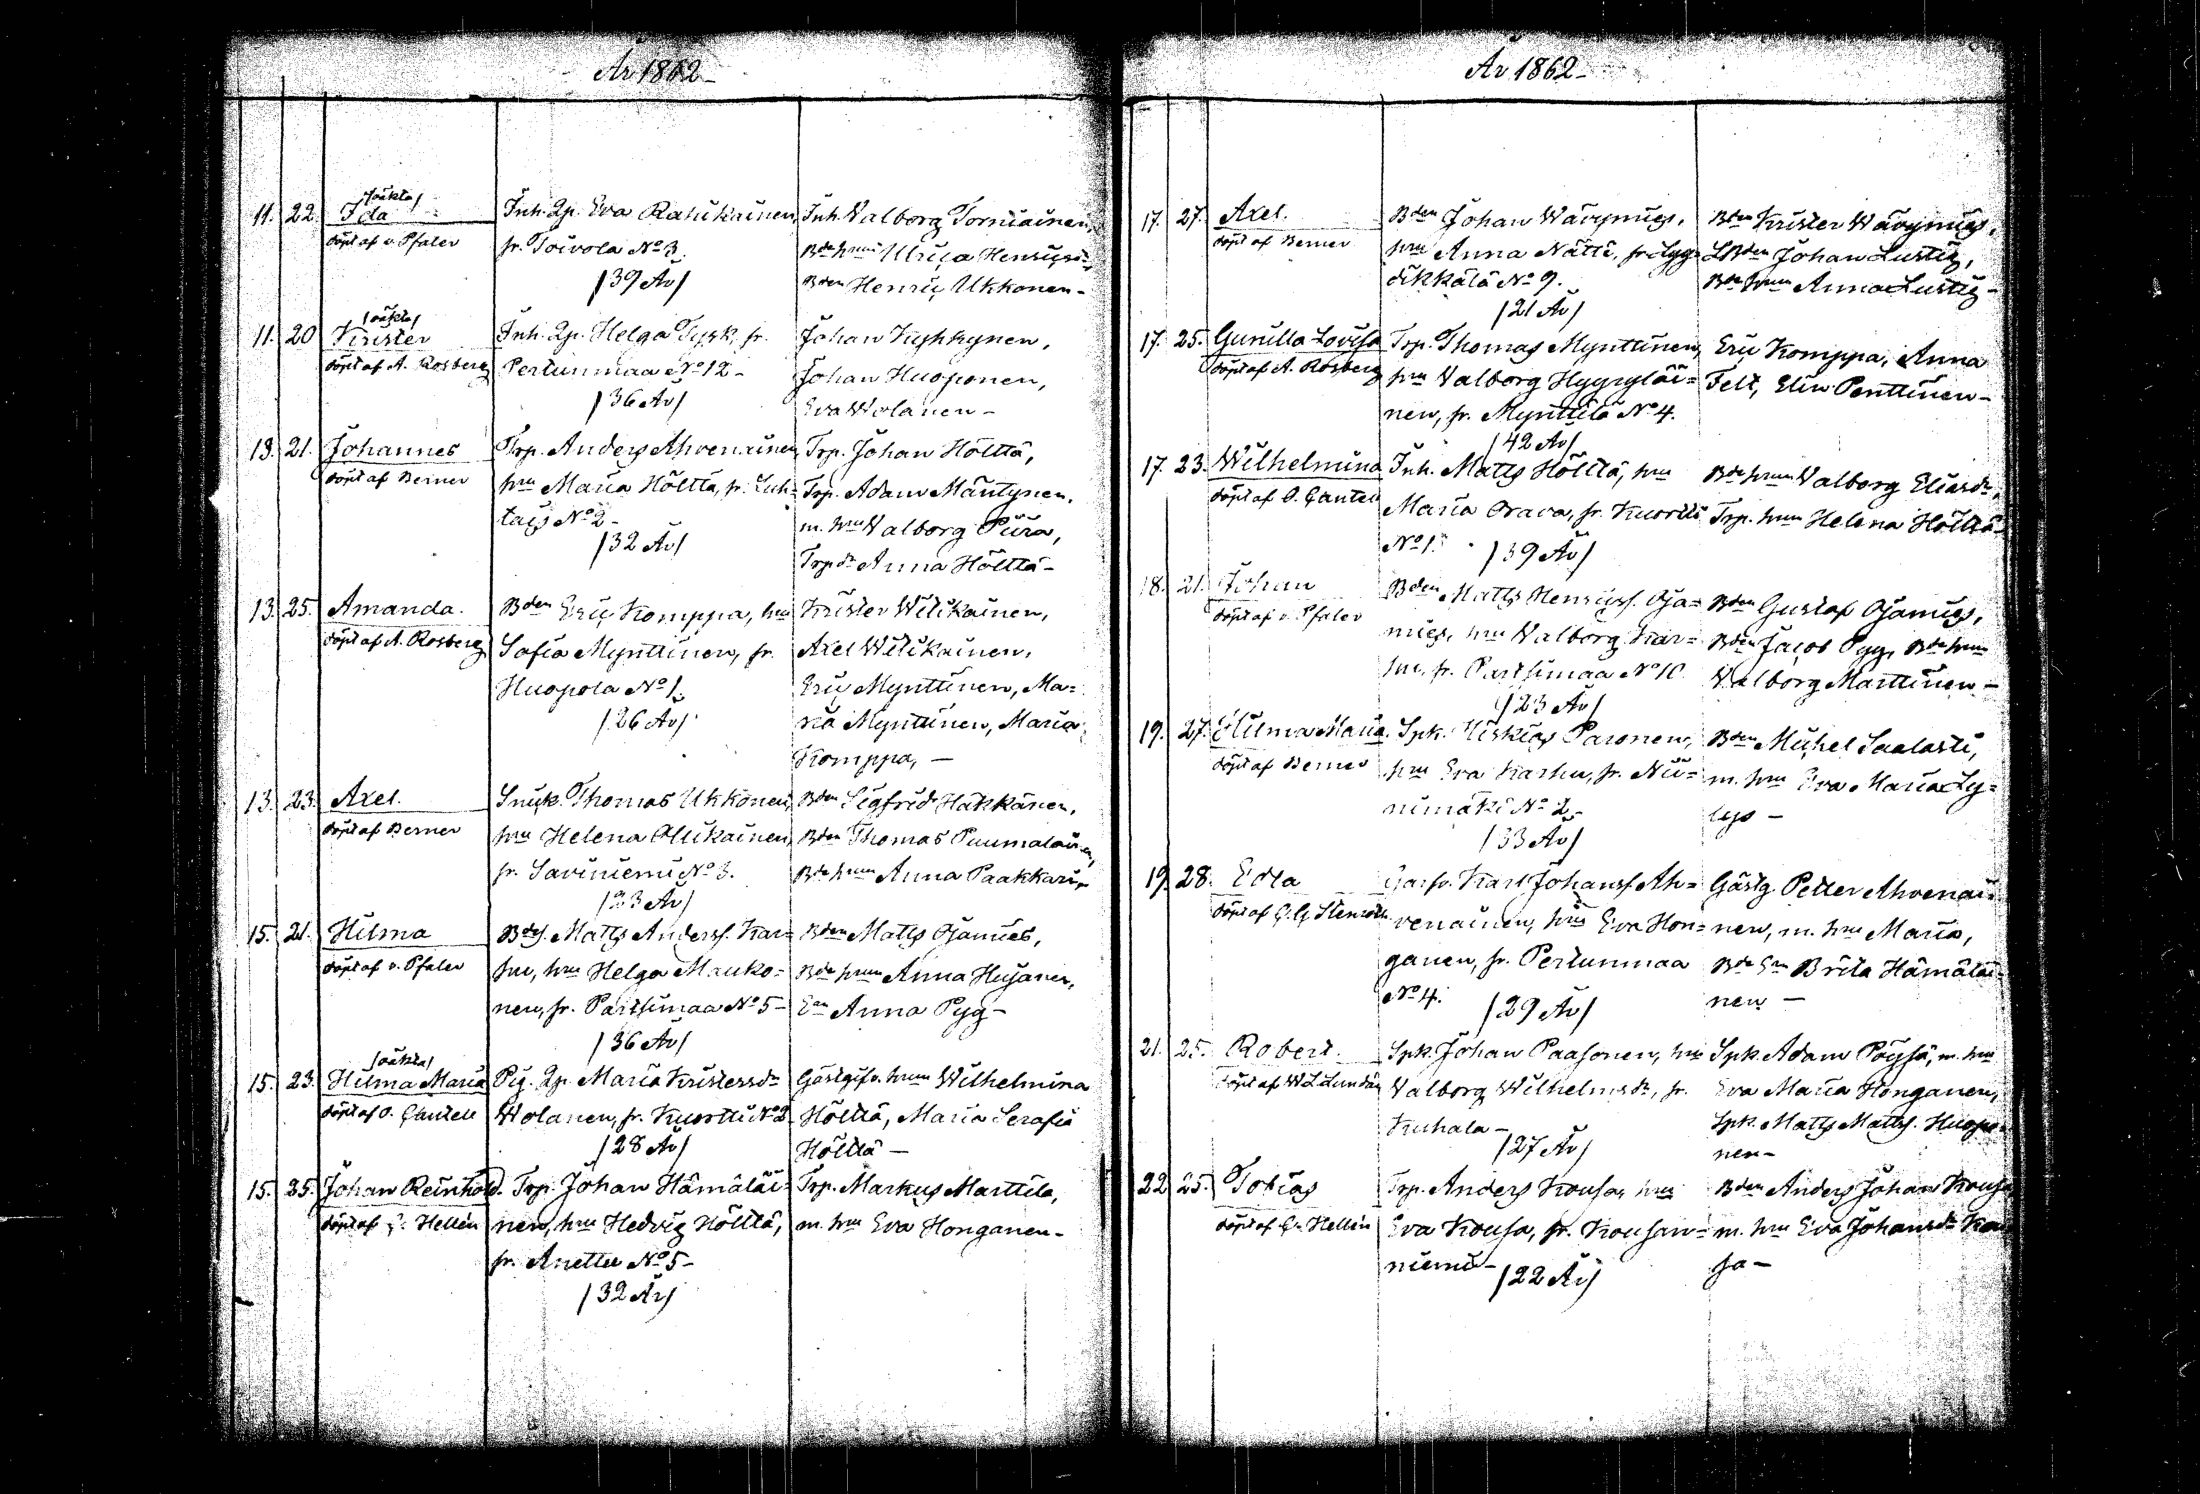 År 1862-
11. 22. /oäkta/ Ida
döpt af v. Pfaler
Inh. Qp. Eva Ratukainen,
fr. Toivola No 3.
/39 År/
Inh. Valborg Torniainen,
Bde hru Ulrica Henricsdr,
Bden Henric Ukkonen-
11. 20 /oäkta/ Krister
döpt af A. Rosberg
Inh. Qp. Helga Tysk, fr.
Pertunmaa No 12-
/36 År/
Johan Kyhkynen,
Johan Huoponen,
Eva Wolanen-
13. 21. Johannes
döpt af Berner
Trp. Anders Ahvenainen,
hru Maria Hölttä, fr. Luh=
tais No 2-
/32 År/
Trp. Johan Hölttä,
Trp. Adam Mäntynen,
m. hru Valborg Piira,
Trpdr Anna Hölttä-
13. 25. Amanda.
döpt af A. Rosberg
Bden Eric Komppa, hru
Sofia Mynttinen, fr.
Huopola No 1.
/26 År/
Krister Wilikainen,
Axel Wilikainen,
Eric Mynttinen, Ma=
ria Mynttinen, Maria
Komppa, -
13. 23. Axel.
döpt af Berner
Snick. Thomas Ukkonen,
hru Helena Ollikainen,
fr. Saviniemi No 3.
/33 År/
Bden Sigfrid Häkkänen,
Bden Thomas Puumalainen,
Bde hrun Anna Paakkari-
15. 21. Hilma
döpt af v. Pfaler
Bdes. Matts Anderss. Kar=
hu, hru Helga Mauko=
nen, fr. Partsimaa No 5-
/36 År/
Bden Matts Ojamies,
Bde hrun Anna Husanen,
Enn Anna Pyy-
15. 23. /oäkta/ Hilma Maria
döpt af O. Gantell
Pig. Qp. Maria Kristersdr
Wolanen, fr. Kuortti No 2
/28 År/
Gästgifv. hrun Wilhelmina
Hölttä, Maria Serafia
Hölttä -
15. 25. Johan Reinhold.
döpt af G. Hellén
Trp. Johan Hämäläi=
nen, hru Hedvig Hölttä,
fr. Anettu No 5-
/32 År/
Trp. Markus Marttila,
m. hru Eva Honganen-
År 1862-
17. 27. Axel.
döpt af Berner
Bden Johan Wäyrynies,
hru Anna Nätti, fr. Lyy=
dikkälä No 9.
/21 År/
Bden Krister Wäyrynies,
LBden Johan Lustig,
Bde hrun Anna Lustig-
17. 25. Gunilla Lovisa
döpt af A. Rosberg
Trp. Thomas Mynttinen,
hru Valborg Hyyryläi=
nen, fr. Mynttilä No 4.
/42 År/
Eric Komppa, Anna
Felt, Elin Penttinen-
17. 23. Wilhelmina
döpt af O. Gantell
Inh. Matts Hölttä, hru
Maria Orava, fr. Kuortti
No 1. /39 År/
Bde hrun Valborg Eliasdr,
Trp. hrun Helena Hölttä-
18. 21. Johan
döpt af v. Pfaler
Bden Matts Henricss. Oja=
mies, hru Valborg Kar=
hu, fr. Partsimaa No 10.
/23 År/
Bden Gustaf Ojamies,
Bden Jacob Pyy, Bde hrun
Valborg Marttinen-
19. 27. Hilma Maria.
döpt af Berner
Spk. Hiskias Paronen,
hru Eva Karhu, fr. Nii=
nimäki No 2-
/33 År/
Bden Michel Saalasti,
m. hru Eva Maria Ly=
lys -
19. 28. Edla
döpt af G. G. Stenroth
Karl Johanss. Ah=
venainen, hru Eva Hon=
ganen, fr. Pertunmaa
No 4. /29 År/
Gästg. Petter Ahvenai=
nen, m. hru Maria,
Bde En Brita Hämäläi=
nen -
21. 25. Robert.
döpt af W. L. Lundán
Spk. Johan Paasonen, hru
Valborg Wilhelmsdr, fr.
Kuhala -
/27 År/
Spk. Adam Pöysä, m. hru
Eva Maria Honganen,
Spk. Matts Matts. Huopo=
nen-
22. 25. Tobias
döpt af G. Hellén
Trp. Anders Kousa, hru
Eva Kousa, fr. Kousan=
niemi- /22 År/
Bden Anders Johan Kousa
m. hru Eva Johansdr Kou=
sa -